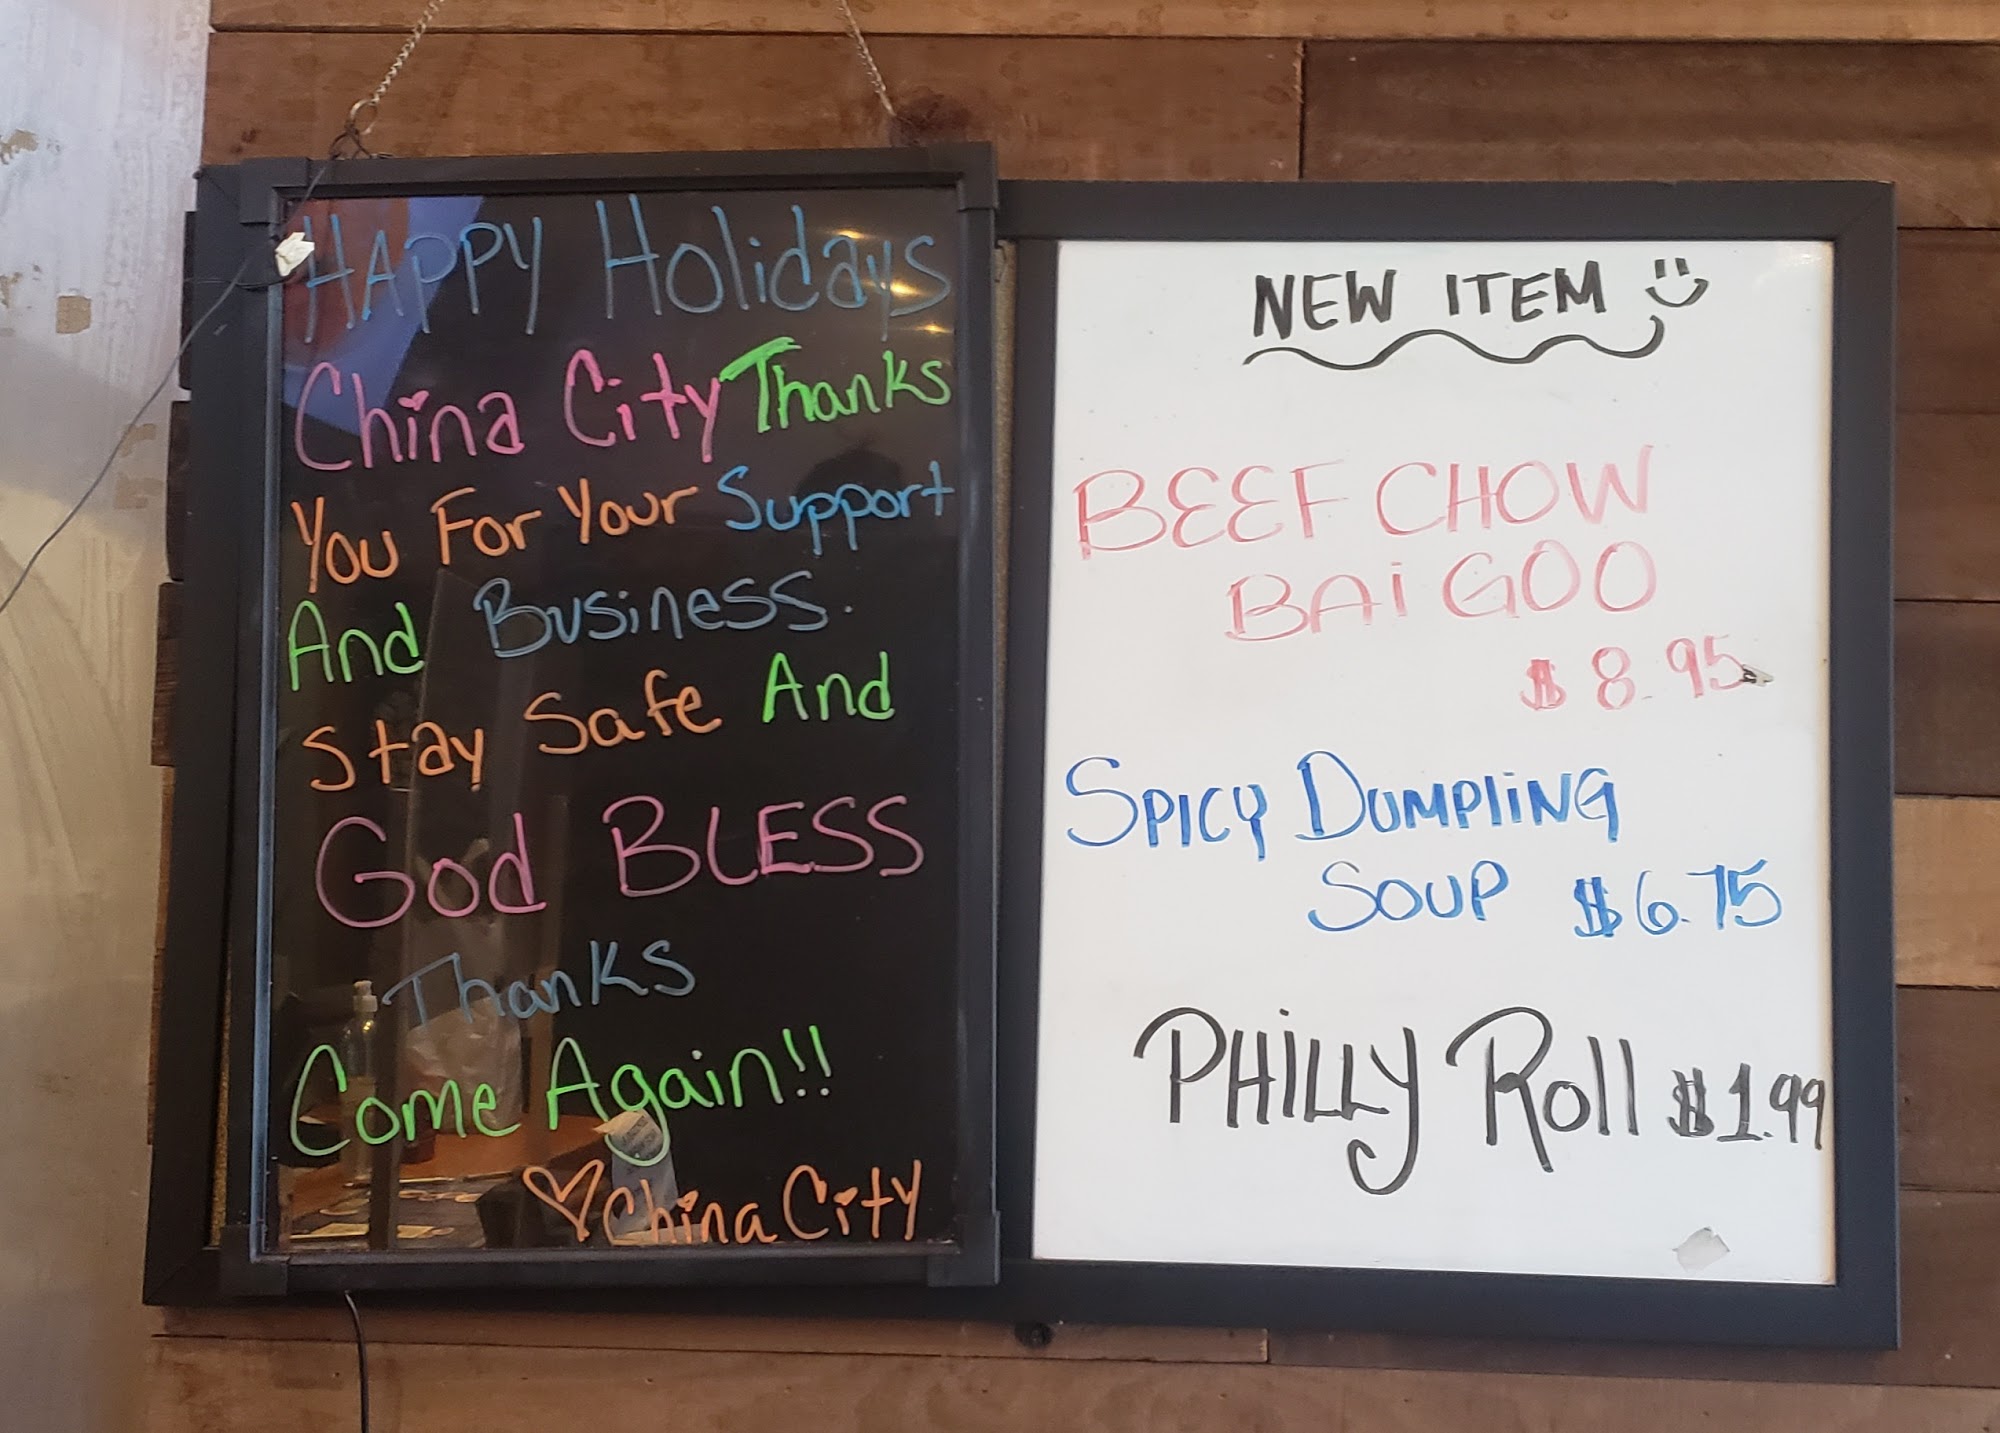 HAPPY Holidays
China City Thanks
You For Your Support
And Business.
Stay Safe And
God BLESS
Thanks
Come Again!!
China City
NEW ITEM
BEEF CHOW
BAi GOO
$8.95
SPICY DUMPliNG
SOUP $6.75
PHiLLY Roll $1.99